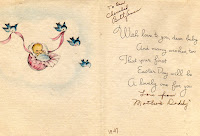 To Our
Cherished
With love to you dear baby
And many wishes too
That your first
Easter Day will be
A lovely one for you
Love from
Mother & Daddy
1947